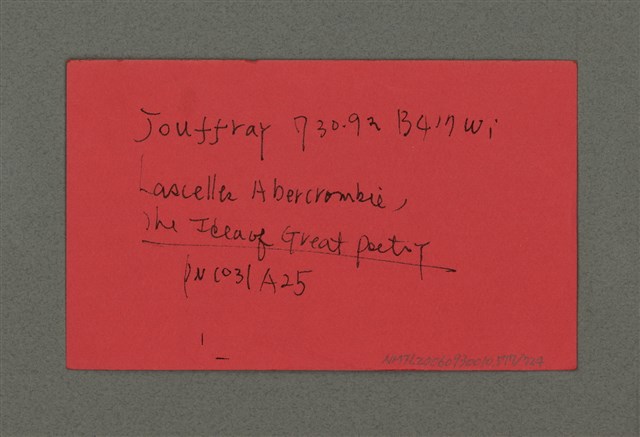 Jouffray 730.92 B417wi
Lascelles Abercrombie,
The Idea of Great Poetry
PN1031 A25